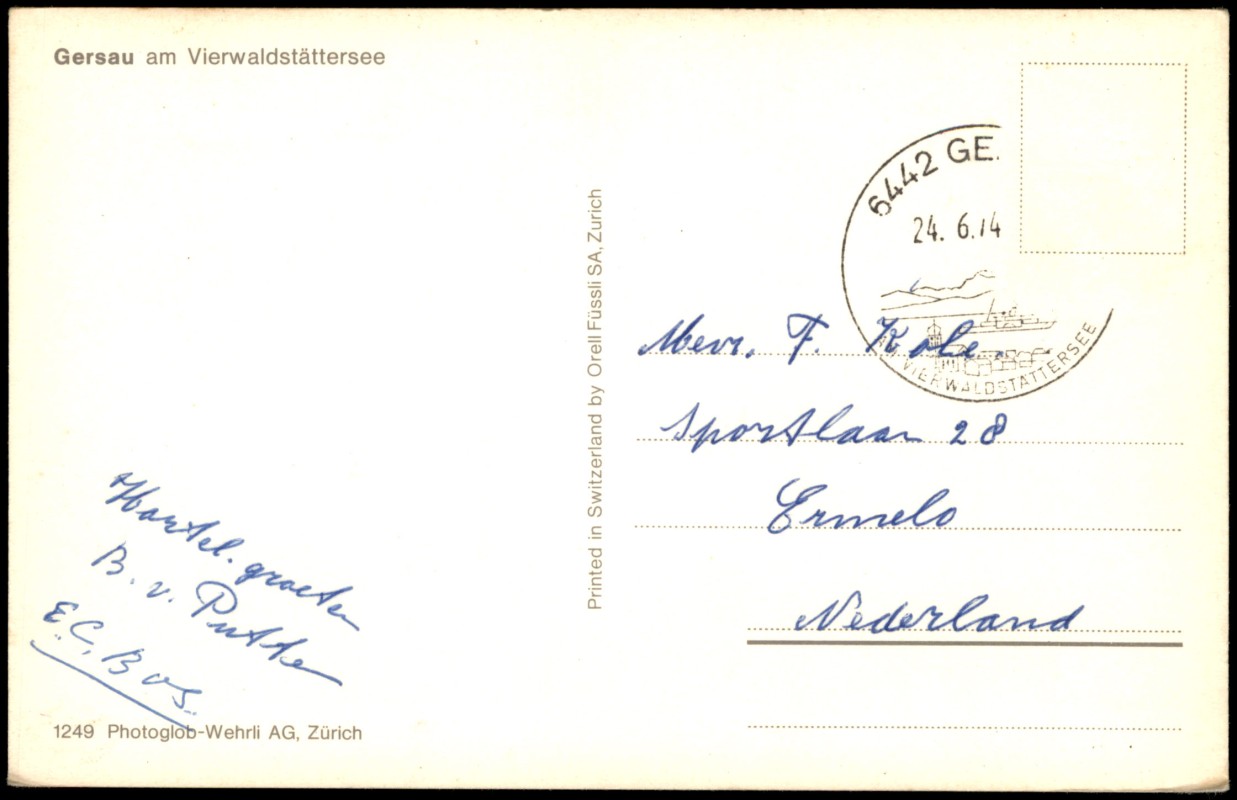 Gersau am Vierwaldstättersee
6442 GE
24. 6.74
VIERWALDSTÄTTERSEE
Mevr. F. Kole.
Sportlaan 28
Ermelo
Nederland
Hartel. groeten
B. v. Putte
E.C. Bos.
Printed in Switzerland by Orell Füssli SA, Zurich
1249 Photoglob-Wehrli AG, Zürich